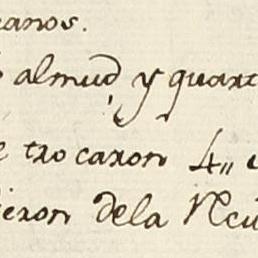 canos.
almud y quart
e trocaron 4,,
ieron dela Ncu